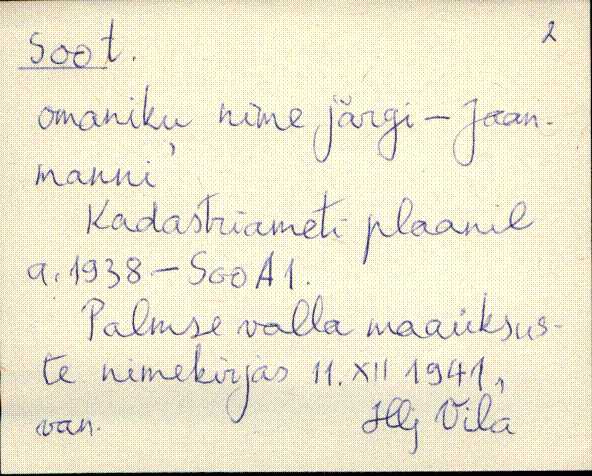 2
Soo t.
omaniku nime järgi – Jaan-
manni
Kadastriameti plaanil
a. 1938 – Soo A1.
Palmse valla maaüksus-
te nimekirjas 11. XII 1941,
van. Vila